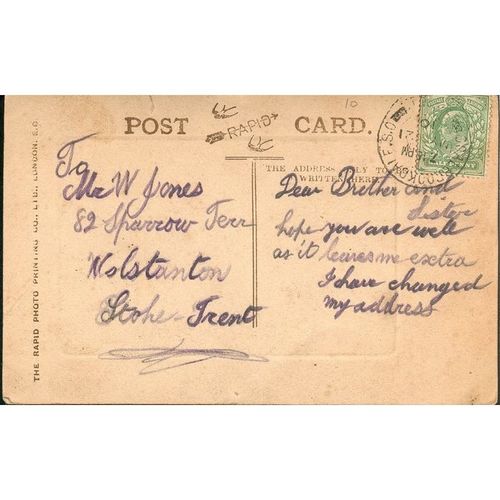 POST CARD.
RAPID
10
THE ADDRESS ONLY TO
WRITTEN HERE
To
Mr W Jones
82 Sparrow Terr
Wolstanton
Stoke-Trent
Dear Brother and
Sister
hope you are well
as it leaves me extra
I have changed
my address
THE RAPID PHOTO PRINTING CO., LTD., LONDON, E.C.